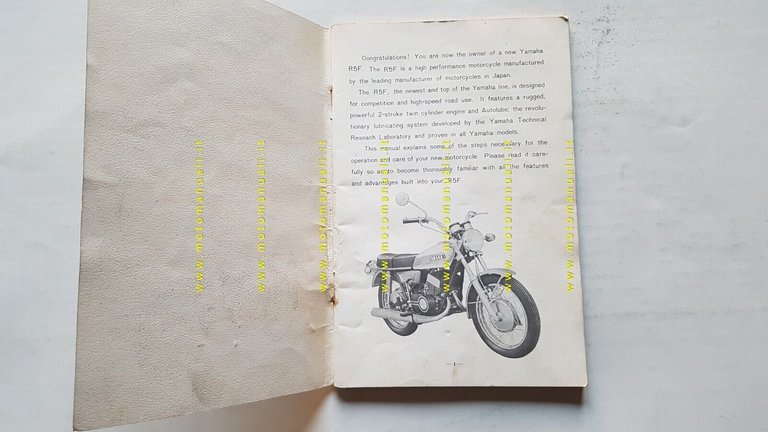 Congratulations! You are now the owner of a new Yamaha
R5F. The R5F is a high performance motorcycle manufactured
by the leading manufacturer of motorcycles in Japan.
The R5F, the newest and top of the Yamaha line, is designed
for competition and high-speed road use. It features a rugged,
powerful 2-stroke twin cylinder engine and Autolube; the revolu-
tionary lubricating system developed by the Yamaha Technical
Reseach Laboratory and proven in all Yamaha models.
This manual explains some of the steps necessary for the
operation and care of your new motorcycle. Please read it care-
fully so as to become thoroughly familiar with all the features
and advantages built into your R5F.
YAMAHA
- 1 -
www.motomanuali.it
www.motomanuali.it
www.motomanuali.it
www.motomanuali.it
www.motomanuali.it
www.motomanuali.it
www.motomanuali.it